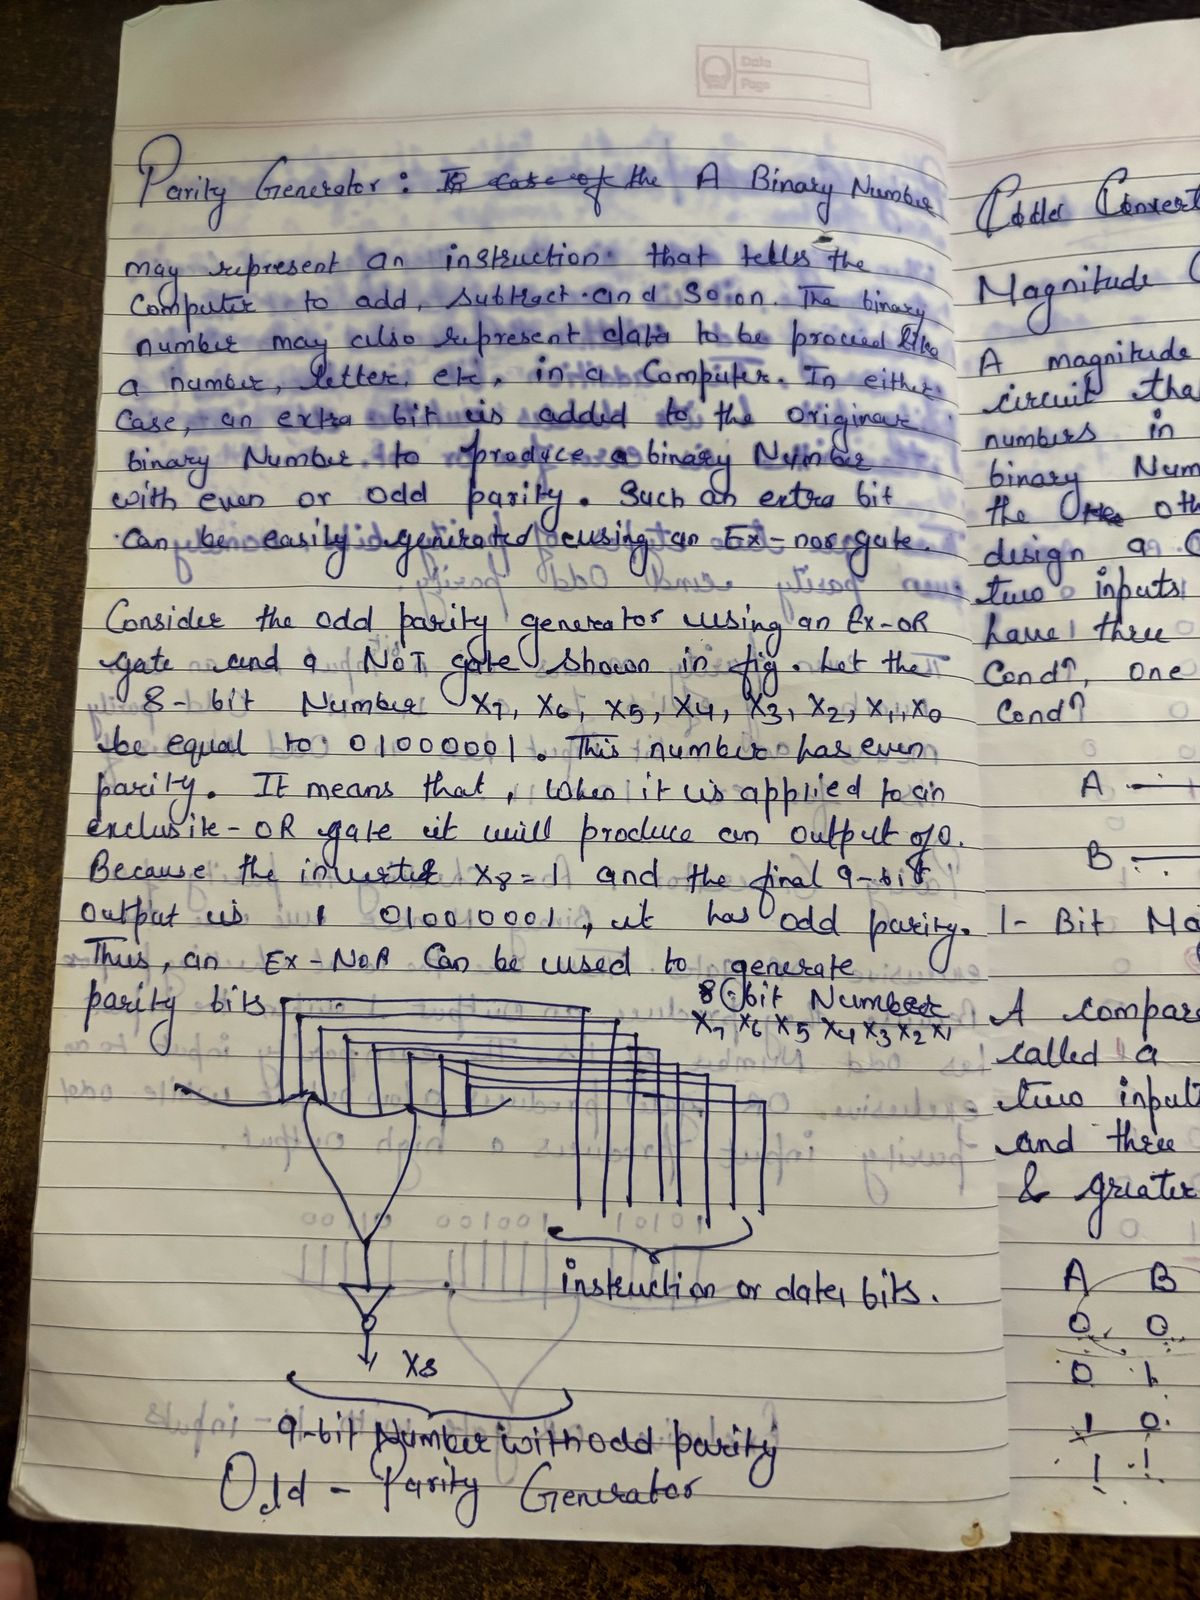 Date
Page
Parity Generator : In case of the A Binary Number
may represent an instruction that tells the
Computer to add, subtract and so on. The binary
number may also represent data to be procied like
a number, letter, etc, in a Computer. In either
Case, an extra bit is added to the original
binary Number to produce a binary Number
with even or odd parity. Such an extra bit
can be easily generated using an Ex-nor gate.
Consider the odd parity generator using an Ex-OR
gate and a NOT gate shown in fig. Let the
8-bit Number X7, X6, X5, X4, X3, X2, X1, X0
be equal to 01000001. This number has even
parity. It means that, when it is applied to an
exclusive-OR gate it will produce an output of 0.
Because the inverter X8 = 1 and the final 9-bit
output is 1 010010001, it has odd parity.
Thus, an Ex-NOR Can be used to generate
parity bits
8-bit Number
X7 X6 X5 X4 X3 X2 X1
instruction or data bits.
X8
9-bit Number with odd parity
Odd - Parity Generator
Code Convert
Magnitude C
A magnitude
circuit tha
numbers in
binary Num
the oth
design a C
two inputs
have three
Condⁿ, one
Condⁿ
A
B
1- Bit Ma
A compar
called a
two input
and three
& greater
A B
0 0
0 1
1 0
1 1